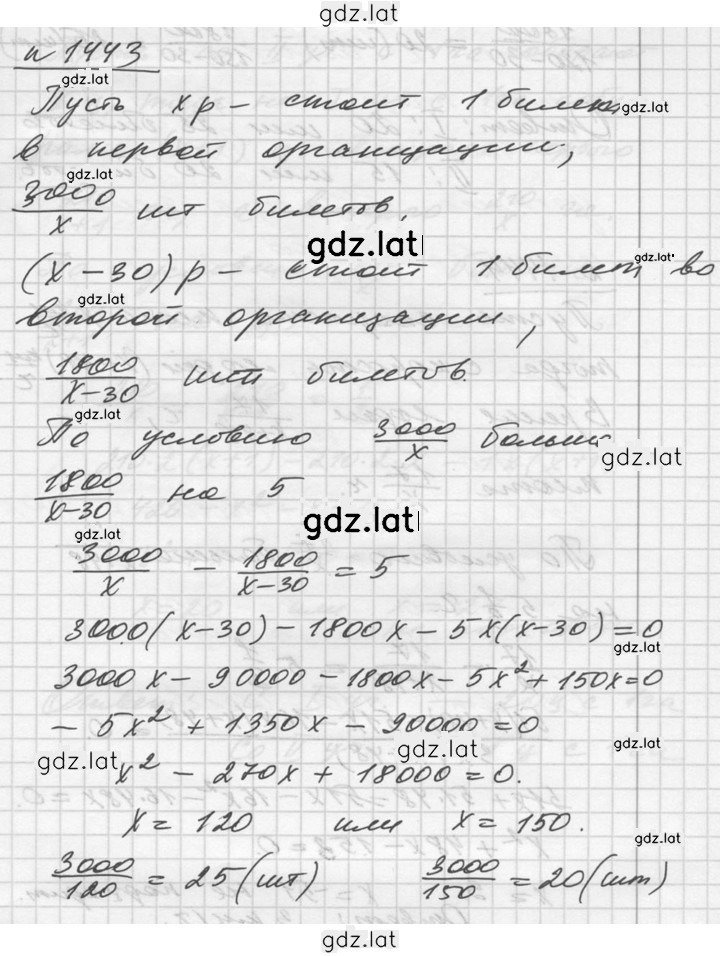 gdz.lat
n 1443
gdz.lat
Пусть x р – стоит 1 билет
gdz.lat
в первой организации,
3000/x шт билетов,
gdz.lat
(x – 30) р – стоит 1 билет во
gdz.lat
gdz.lat
второй организации,
1800/x–30 шт билетов.
gdz.lat
По условию 3000/x больше
gdz.lat
1800/x–30 на 5
gdz.lat
gdz.lat
3000/x – 1800/x–30 = 5
3000(x–30) – 1800x – 5x(x–30) = 0
gdz.lat
3000x – 90000 – 1800x – 5x² + 150x = 0
– 5x² + 1350x – 90000 = 0
gdz.lat
gdz.lat
gdz.lat
x² – 270x + 18000 = 0.
x = 120 или x = 150.
gdz.lat
3000/120 = 25 (шт) 3000/150 = 20 (шт)
gdz.lat